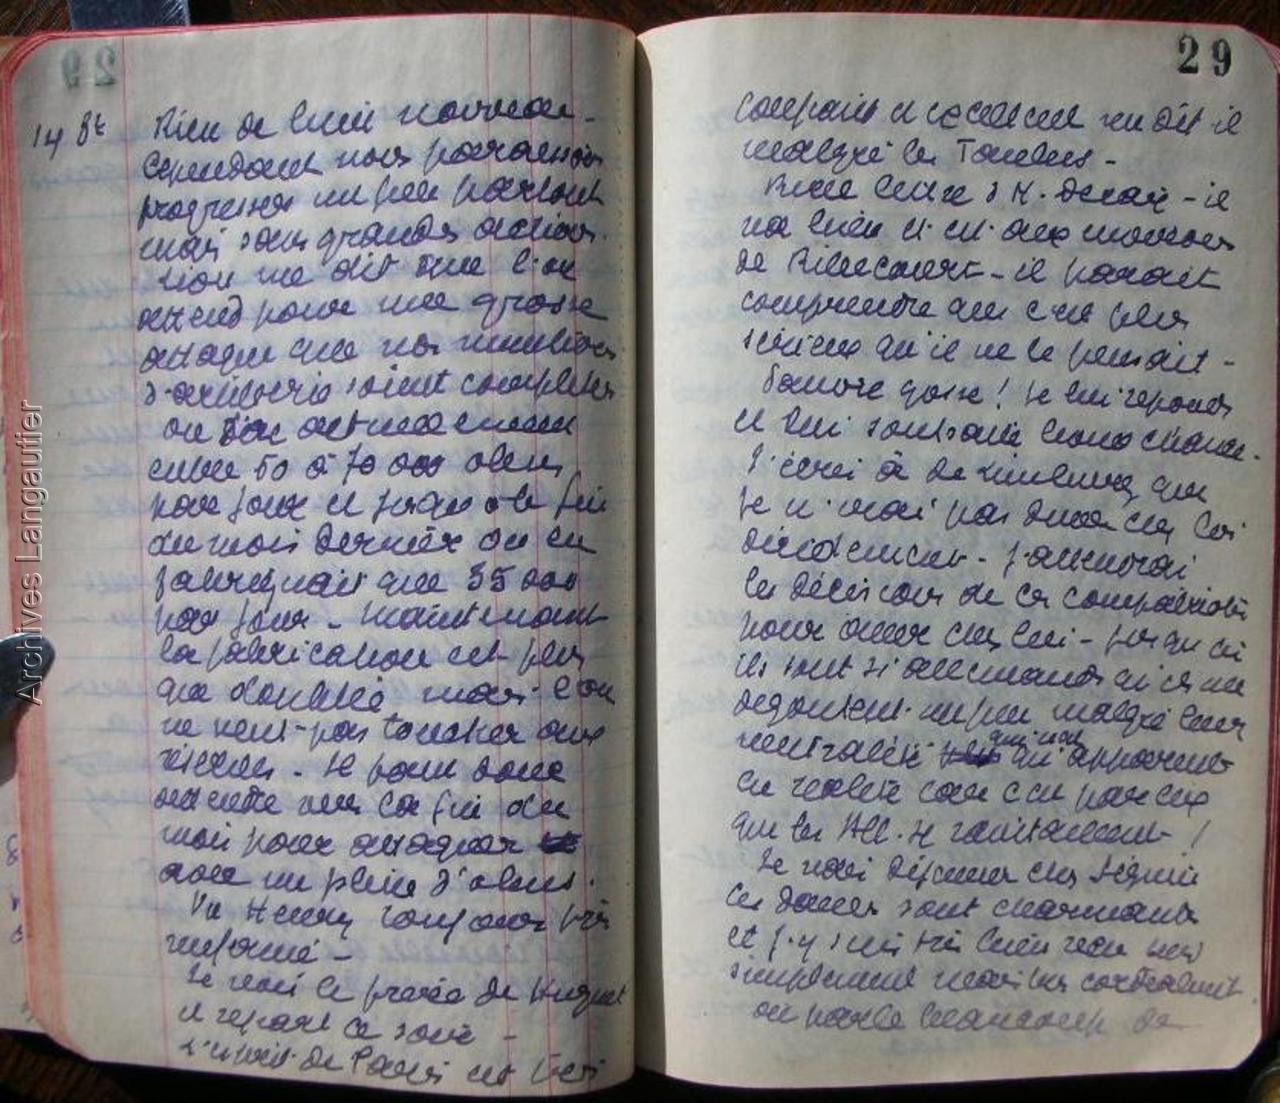 29
14 8bre
Rien de bien nouveau -
Cependant nous paraissons
progresser un peu partout
mais sans grandes actions.
Lion me dit que l'on
attend pour une grosse
attaque que nos munitions
d'artillerie soient complètes
on actuellement
entre 50 à 70 000 obus
par jour et jusqu'à la fin
du mois dernier on en
fabriquait que 35 000
par jour - maintenant
la fabrication est plus
que doublée mais l'on
ne veut pas toucher aux
réserves - Il faut donc
attendre vers la fin du
mois pour attaquer
avec un plein d'obus.
Vu Henry toujours très
informé -
Je vois le de Huguet
il repart ce soir -
L'esprit de Paris est très
29
confiant et excellent me dit-il
malgré les Taubes -
Recu lettre d'H. - il
va bien et est aux
de - il parait
comprendre que c'est plus
sérieux qu'il ne le pensait -
Pauvre gosse ! Je lui réponds
et lui souhaite bonne chance.
J'écris à de que
je n'irai pas diner chez lui
décidement - J'attendrai
les décisions de ces compatriotes
pour aller chez lui - jusqu'ici
ils sont si allemands qu'ils me
dégoutent un peu malgré leur
neutralité qui n'est qu'apparente
en réalité car c'est par eux
que les All. se ravitaillent !
Je vais déjeuner chez Séguin
Ces dames sont charmantes
et j'y suis très bien reçu
simplement mais très cordialement.
on parle beaucoup de
Archives Langautier